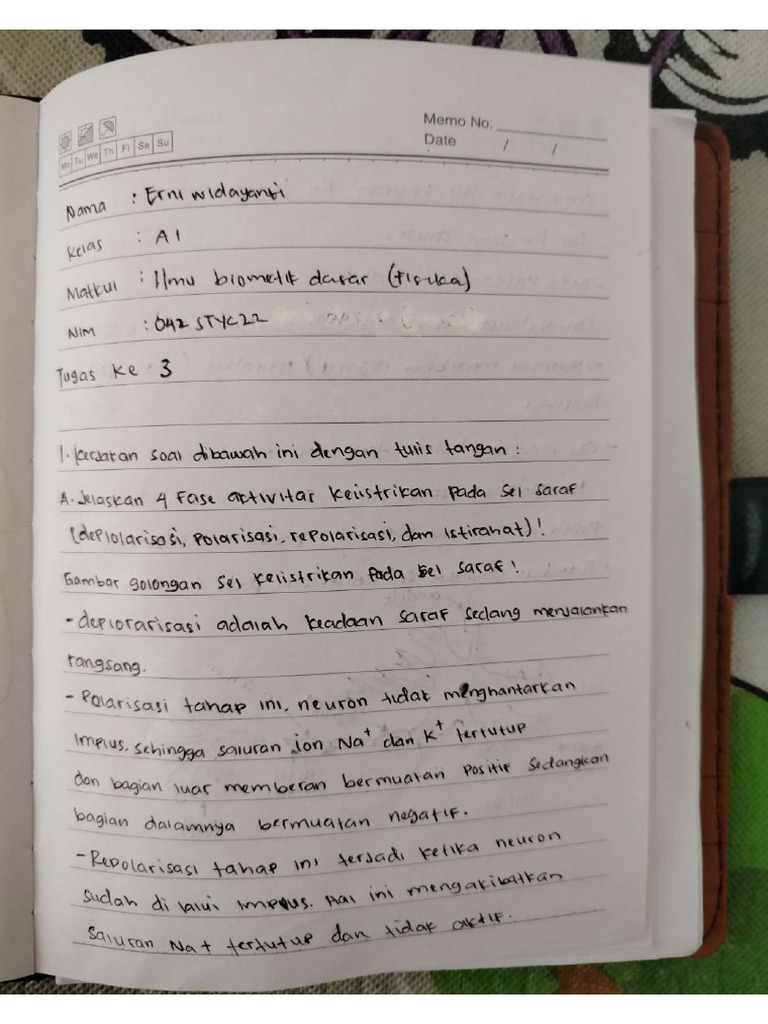 Memo No.
Date / /
Mo Tu We Th Fr Sa Su
Nama : Erni widayanti
Kelas : A1
Matkul : Ilmu biometik dasar (fisika)
NIM : 042 STYC22
Tugas Ke : 3
1. Kerjakan soal dibawah ini dengan tulis tangan :
A. Jelaskan 4 Fase aktivitas kelistrikan pada sel saraf
(deplolarisasi, polarisasi, repolarisasi, dan istirahat)!
Gambar golongan sel kelistrikan pada sel saraf!
- deplorarisasi adalah keadaan saraf sedang menjalankan
rangsang.
- Polarisasi tahap ini, neuron tidak menghantarkan
Implus. sehingga saluran ion Na+ dan K+ tertutup
dan bagian luar memberan bermuatan positif sedangkan
bagian dalamnya bermuatan negatif.
- Repolarisasi tahap ini terjadi ketika neuron
sudah di lalui implus. Hal ini mengakibatkan
saluran Na+ tertutup dan tidak aktif.